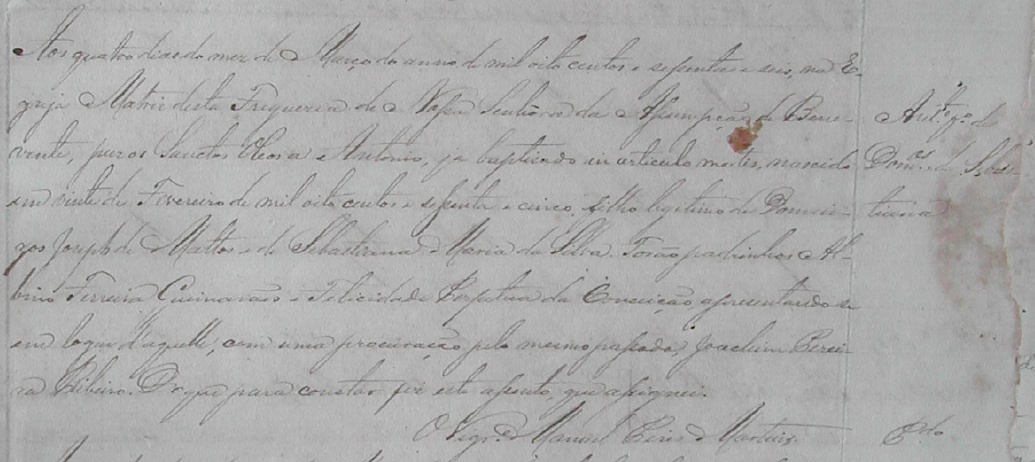 Aos quatro dias do mez de Março do anno de mil oito centos e sessenta e seis, na E-
greja Matriz desta Freguezia de Nossa Senhora da Assumpção de Bene-
vente, puz os Sanctos Oleos a Antonio, ja baptizado in articulo mortis, nascido
em vinte de Fevereiro de mil oito centos e sessenta e cinco, filho legitimo de Domin-
gos Joseph de Mattos e de Sebastiana Maria da Silva. Forão padrinhos Al-
bino Ferreira Guimarães e Felicidade Perpetua da Conceição, apresentando-se
em logar d'aquelle, com uma procuração pelo mesmo passada, Joachim Perei-
ra Ribeiro. Do que para constar fiz este assento, que assignei.
O Vigr.º Manuel Pires Martins
Ant.º f.º de
Dom.os de